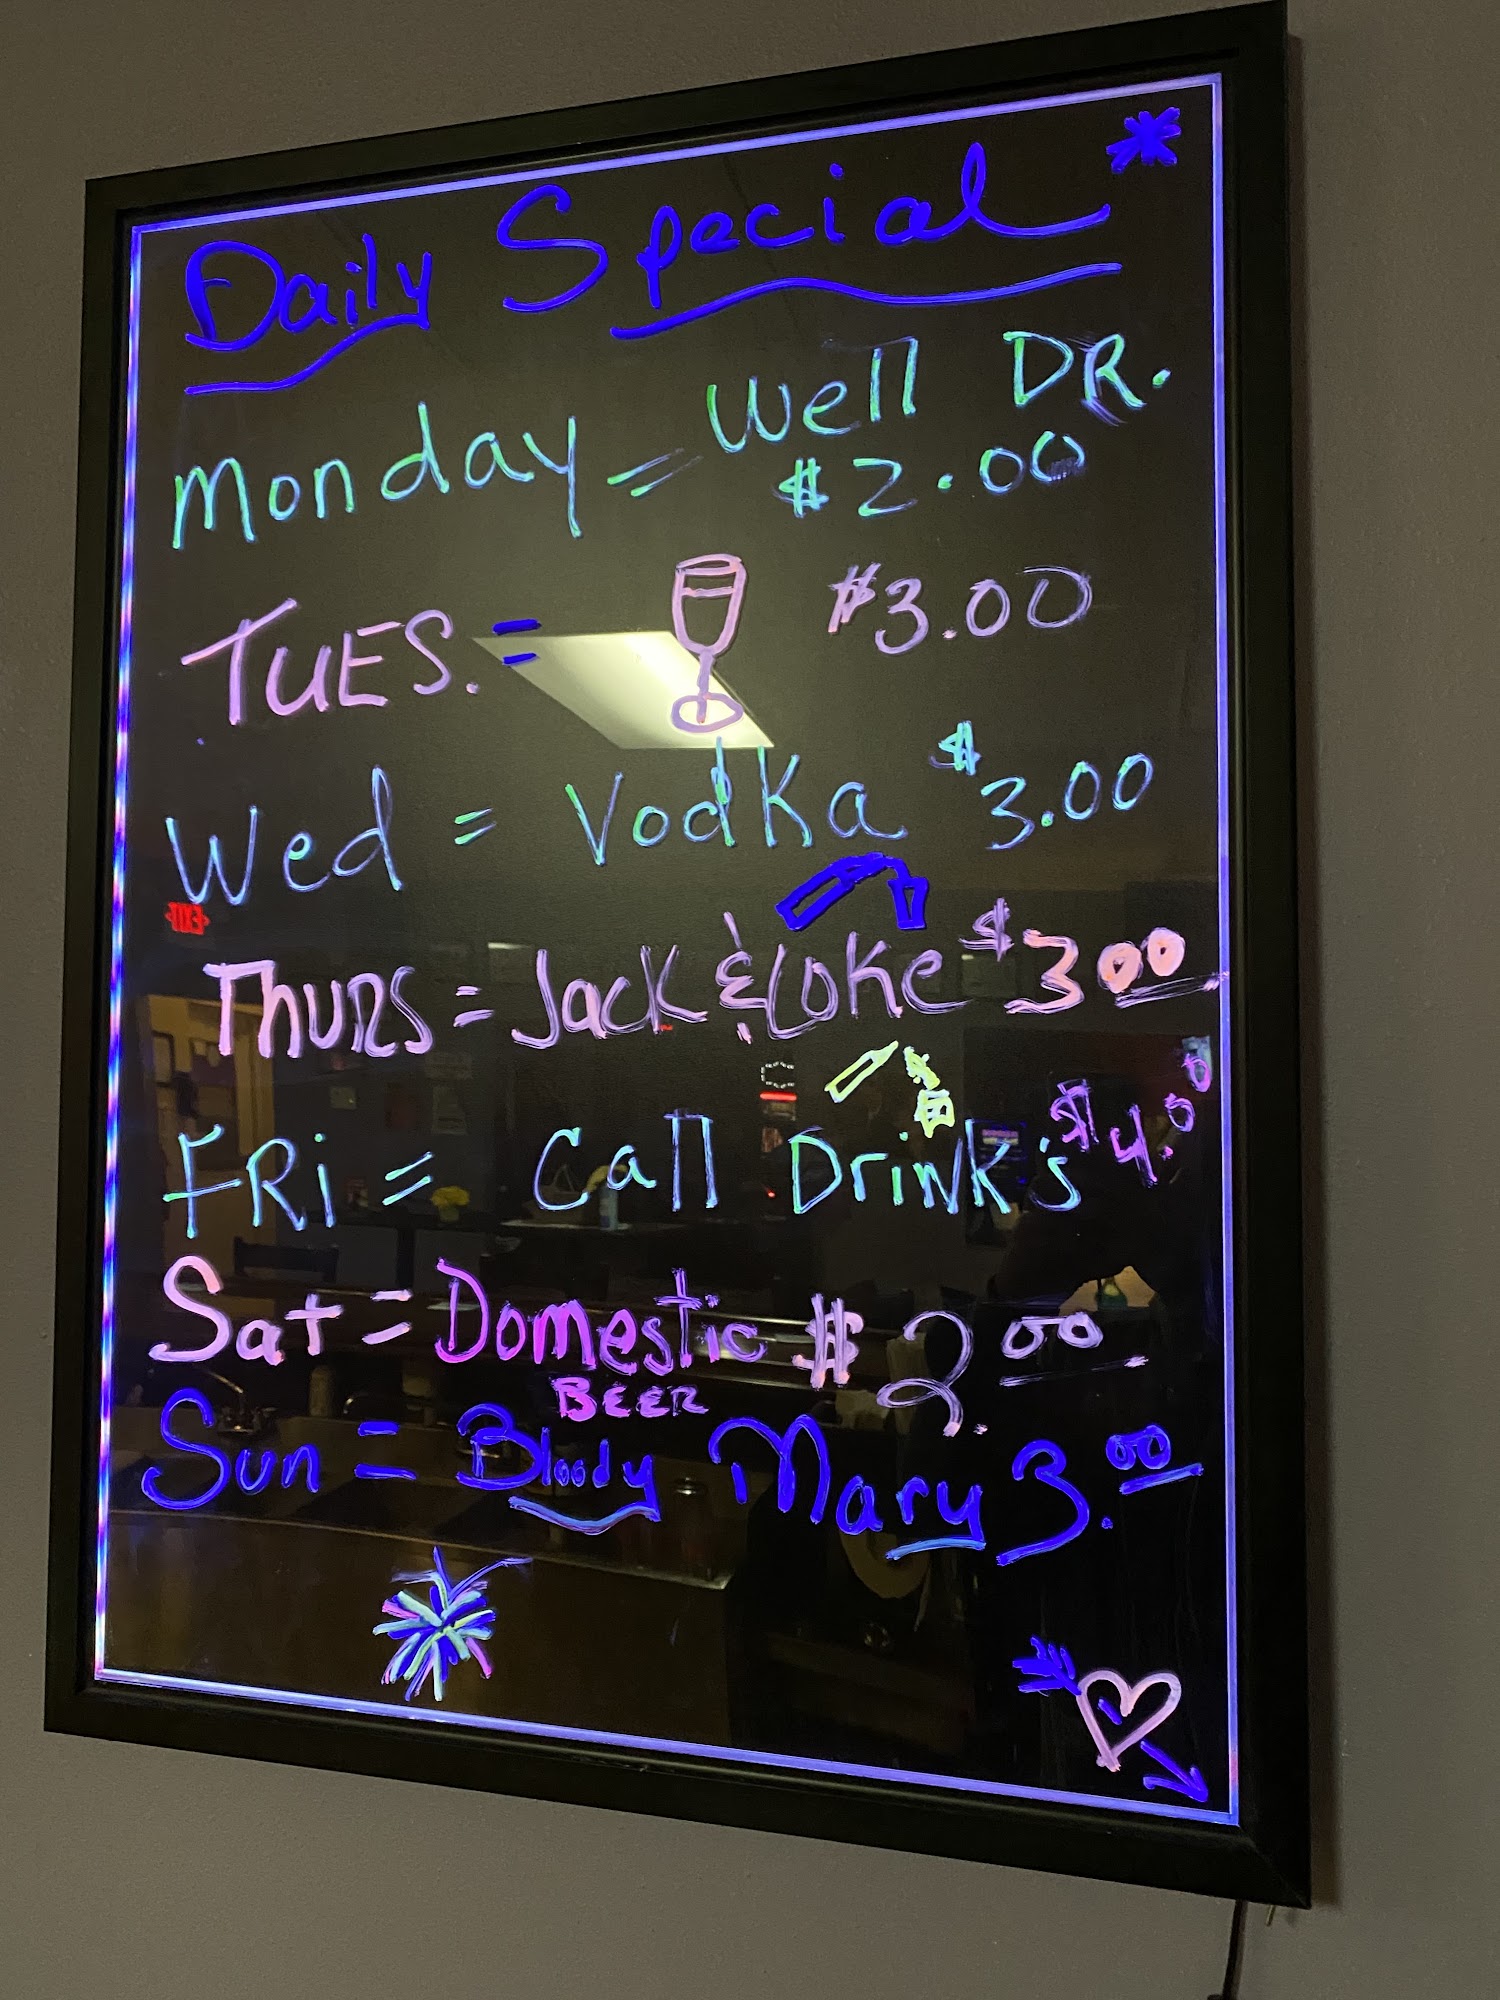 Daily Special
Monday = Well DR.
$2.00
TUES. = $3.00
Wed = Vodka $3.00
THURS = Jack & Coke $3 00
FRi = Call Drink's $4.00
Sat = Domestic $2.00
BEER
Sun = Bloody Mary 3.00